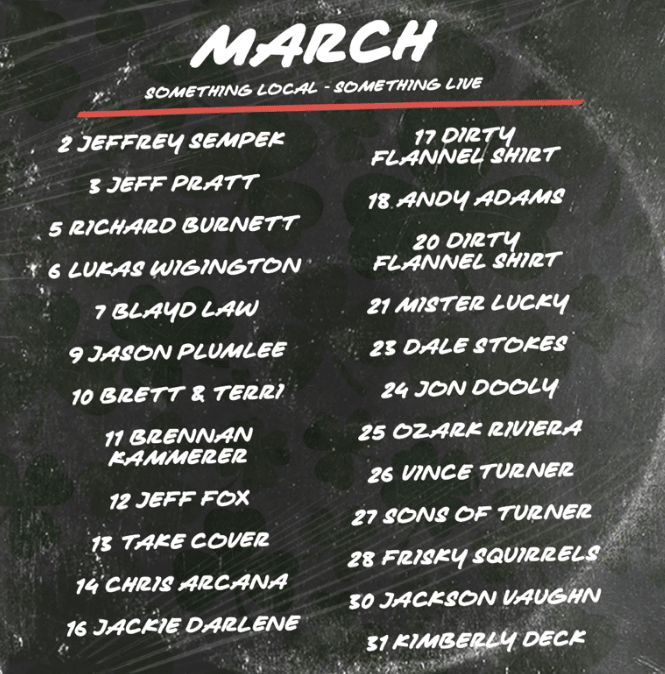 MARCH
SOMETHING LOCAL - SOMETHING LIVE
2 JEFFREY SEMPEK
3 JEFF PRATT
5 RICHARD BURNETT
6 LUKAS WIGINGTON
7 BLAYD LAW
9 JASON PLUMLEE
10 BRETT & TERRI
11 BRENNAN
KAMMERER
12 JEFF FOX
13 TAKE COVER
14 CHRIS ARCANA
16 JACKIE DARLENE
17 DIRTY
FLANNEL SHIRT
18 ANDY ADAMS
20 DIRTY
FLANNEL SHIRT
21 MISTER LUCKY
23 DALE STOKES
24 JON DOOLY
25 OZARK RIVIERA
26 VINCE TURNER
27 SONS OF TURNER
28 FRISKY SQUIRRELS
30 JACKSON VAUGHN
31 KIMBERLY DECK